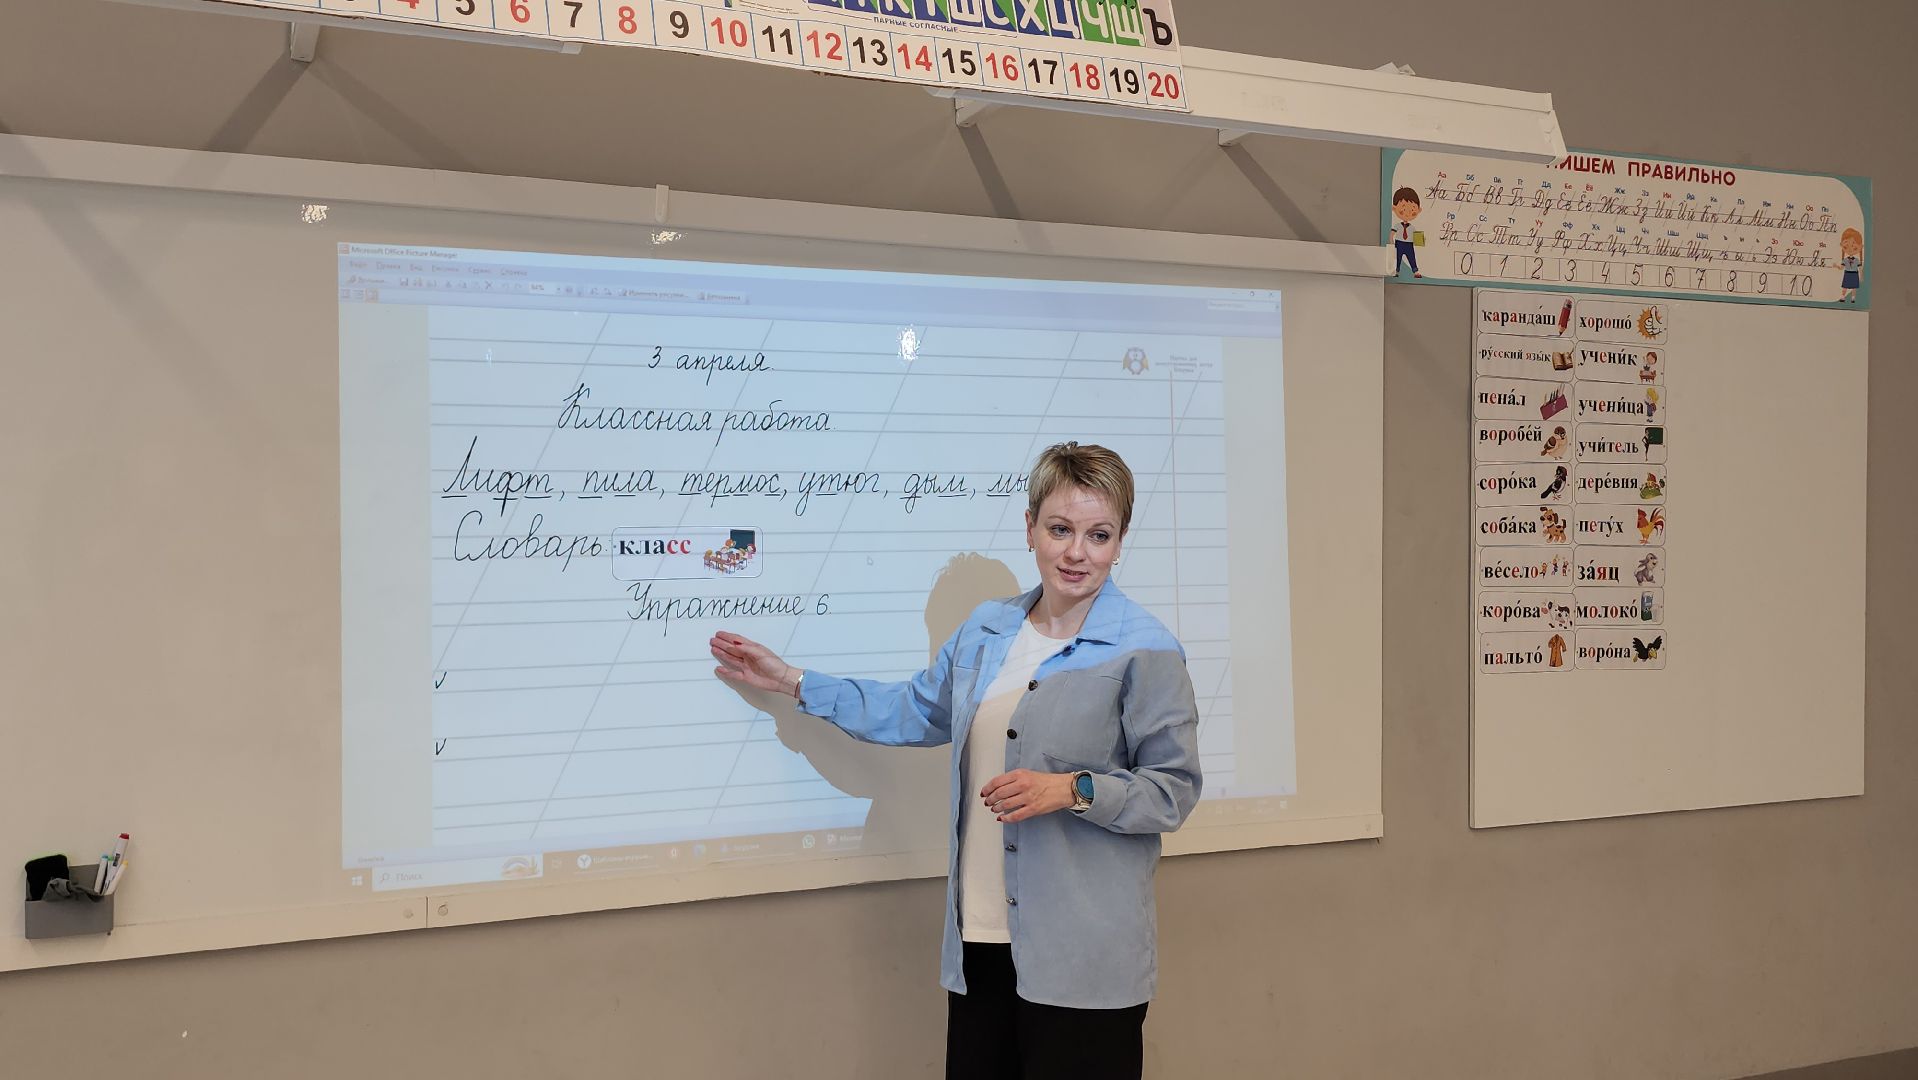 4 5 6 7 8 9 10 11 12 13 14 15 16 17 18 19 20
ПАРНЫЕ СОГЛАСНЫЕ
Х Ц Ч Щ Ъ
Microsoft Office Picture Manager
Файл Правка Вид Рисунок Сервис Справка
3 апреля.
Классная работа.
Лифт, пила, термос, утюг, дым, мы
Словарь: класс
Упражнение 6.
Поиск
ПИШЕМ ПРАВИЛЬНО
Аа Бб Вв Гг Дд Ее Ёё Жж Зз Ии Йй Кк Лл Мм Нн Оо Пп
Рр Сс Тт Уу Фф Хх Цц Чч Шш Щщ ъ ы ь Ээ Юю Яя
0 1 2 3 4 5 6 7 8 9 10
каранда́ш хорошо́
ру́сский язы́к учени́к
пена́л учени́ца
воробе́й учи́тель
соро́ка дере́вня
соба́ка пету́х
ве́село за́яц
коро́ва молоко́
пальто́ воро́на